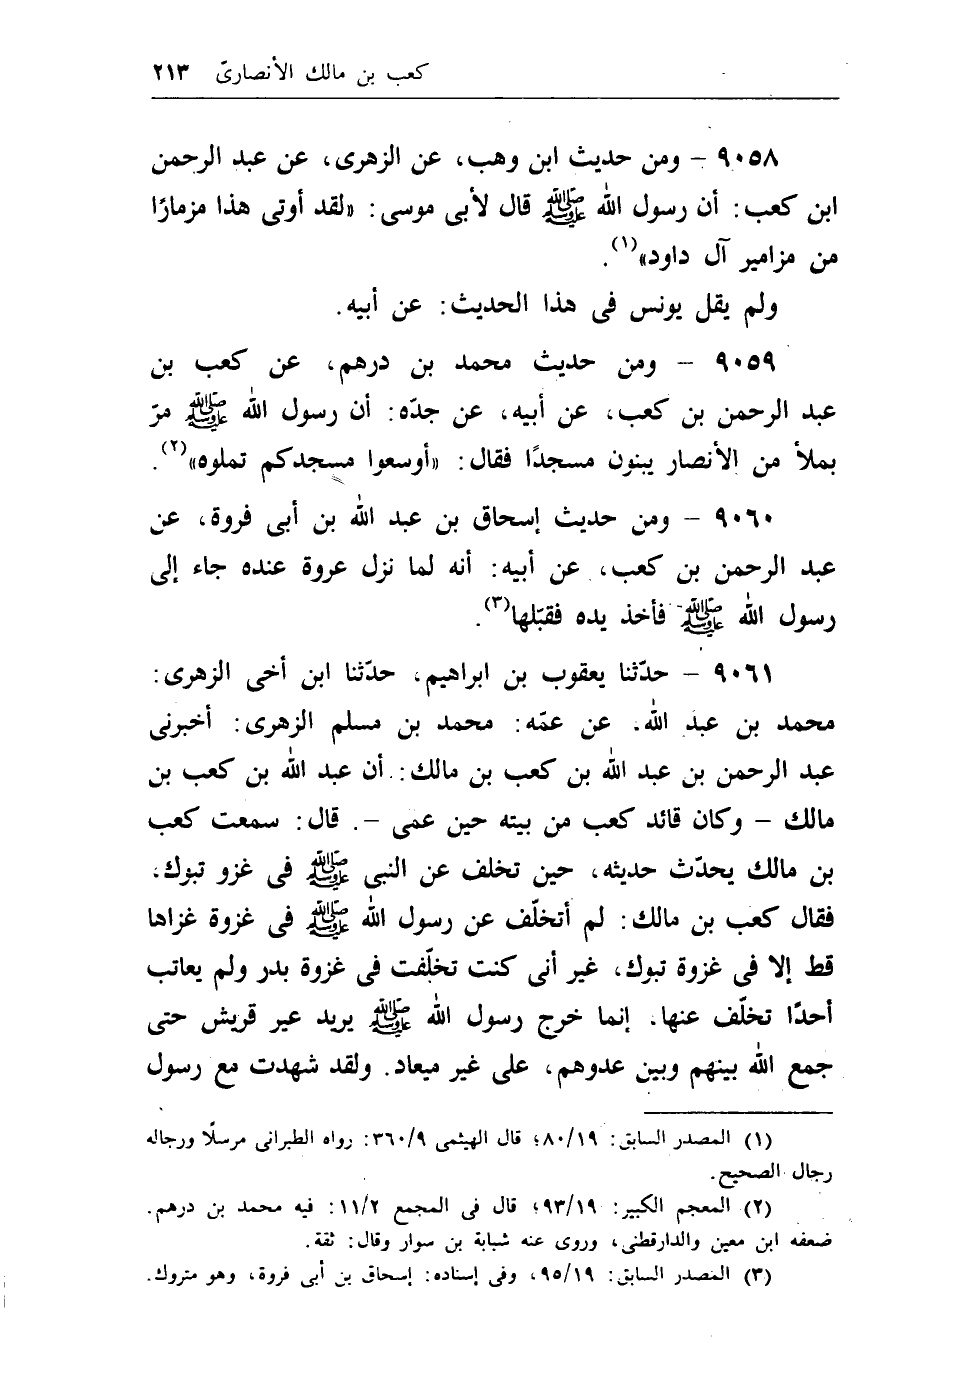 كعب بن مالك الأنصارىّ ٢١٣
٩٠٥٨ – ومن حديث ابن وهب، عن الزهرى، عن عبد الرحمن
ابن كعب: أن رسول الله ﷺ قال لأبى موسى: «لقد أوتى هذا مزمارًا
من مزامير آل داود»(١).
ولم يقل يونس فى هذا الحديث: عن أبيه.
٩٠٥٩ – ومن حديث محمد بن درهم، عن كعب بن
عبد الرحمن بن كعب، عن أبيه، عن جدّه: أن رسول الله ﷺ مرّ
بملأ من الأنصار يبنون مسجدًا فقال: «أوسعوا مسجدكم تملوه»(٢).
٩٠٦٠ – ومن حديث إسحاق بن عبد الله بن أبى فروة، عن
عبد الرحمن بن كعب، عن أبيه: أنه لما نزل عروة عنده جاء إلى
رسول الله ﷺ فأخذ يده فقبّلها(٣).
٩٠٦١ – حدّثنا يعقوب بن ابراهيم، حدّثنا ابن أخى الزهرى:
محمد بن عبد الله. عن عمّه: محمد بن مسلم الزهرى: أخبرنى
عبد الرحمن بن عبد الله بن كعب بن مالك: أن عبد الله بن كعب بن
مالك – وكان قائد كعب من بيته حين عمى –. قال: سمعت كعب
بن مالك يحدّث حديثه، حين تخلف عن النبى ﷺ فى غزو تبوك،
فقال كعب بن مالك: لم أتخلّف عن رسول الله ﷺ فى غزوة غزاها
قط إلا فى غزوة تبوك، غير أنى كنت تخلّفت فى غزوة بدر ولم يعاتب
أحدًا تخلّف عنها. إنما خرج رسول الله ﷺ يريد عير قريش حتى
جمع الله بينهم وبين عدوهم، على غير ميعاد. ولقد شهدت مع رسول
(١) المصدر السابق: ٨٠/١٩؛ قال الهيثمى ٣٦٠/٩: رواه الطبرانى مرسلًا ورجاله
رجال الصحيح.
(٢) المعجم الكبير: ٩٣/١٩؛ قال فى المجمع ١١/٢: فيه محمد بن درهم.
ضعفه ابن معين والدارقطنى، وروى عنه شبابة بن سوار وقال: ثقة.
(٣) المصدر السابق: ٩٥/١٩، وفى إسناده: إسحاق بن أبى فروة، وهو متروك.